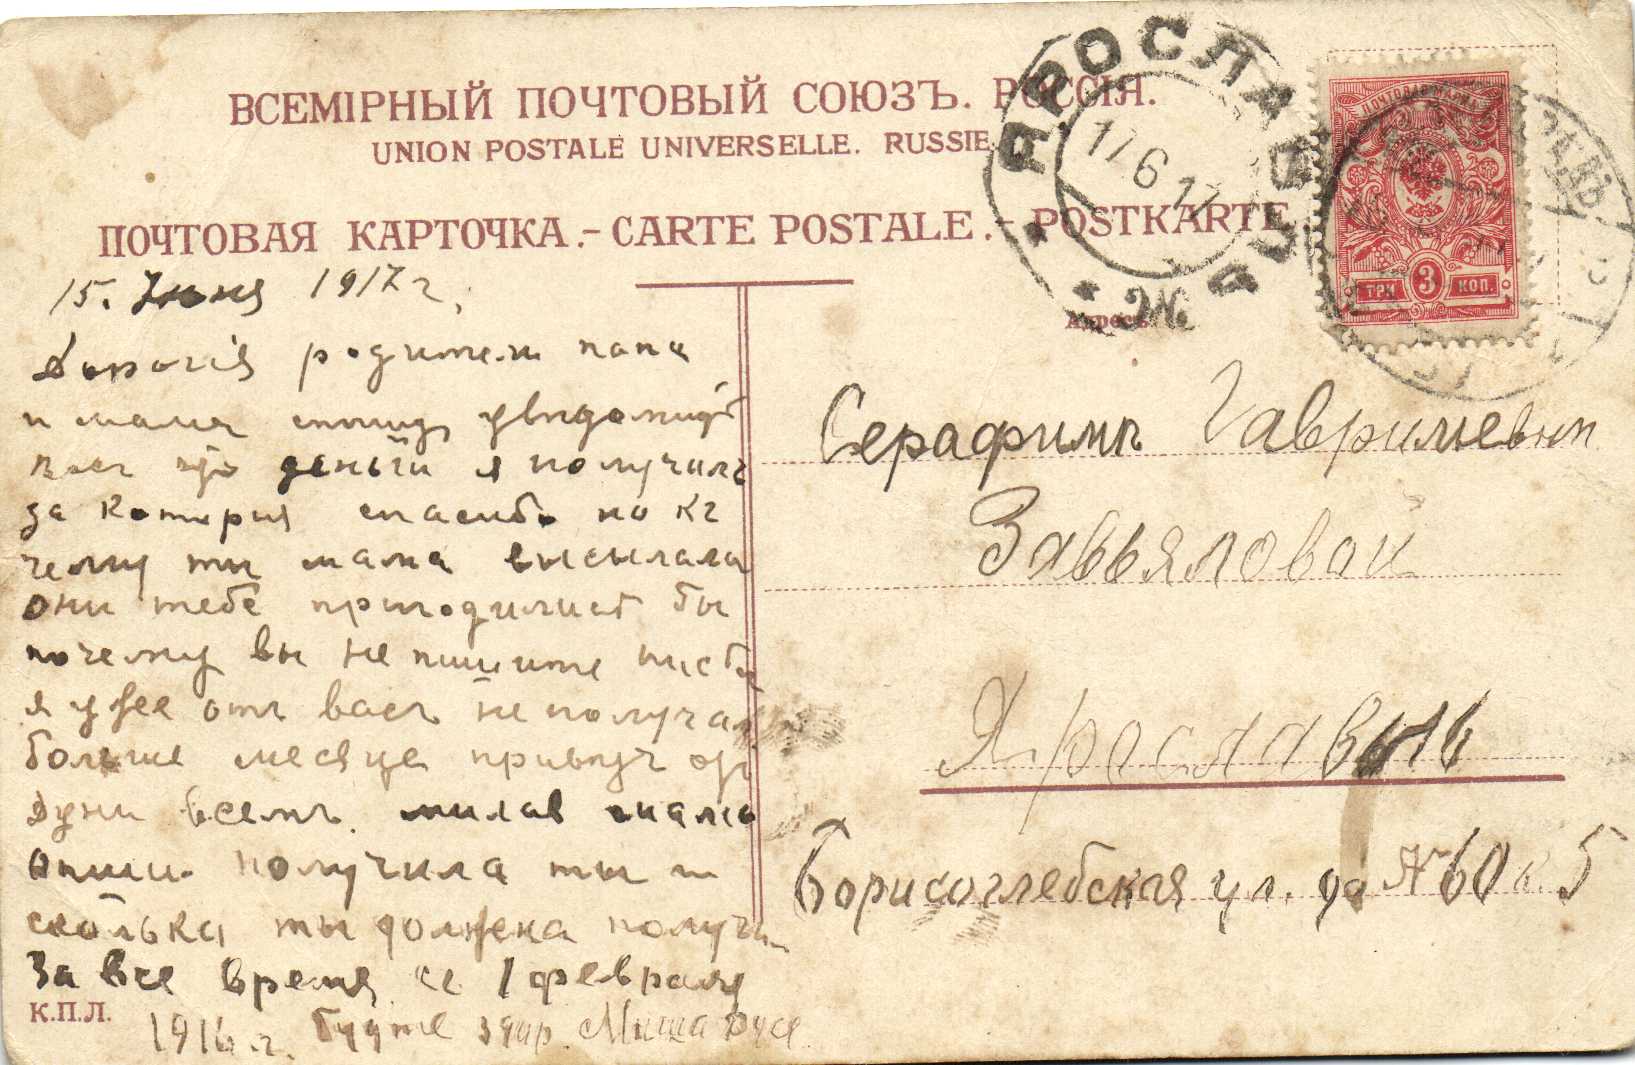 ВСЕМІРНЫЙ ПОЧТОВЫЙ СОЮЗЪ. РОССІЯ.
UNION POSTALE UNIVERSELLE. RUSSIE.
ПОЧТОВАЯ КАРТОЧКА.-CARTE POSTALE.-POSTKARTE
ЯРОСЛАВЛЬ
17 6 17
ТРИ 3 КОП.
Адресъ
15. Июня 1917 г.
Дорогія родители папа
и мама спешу уведомить
васъ что деньги я получилъ
за которыя спасибо но къ
чему ты мама высылала
они тебе пригодились бы
почему вы не пишите письма
я уже отъ васъ не получал
больше месяца привет от
Дуни всемъ. милая мама
опиши получила ты и
сколька ты должена получи
За все время с 1 февраля
1916 г. Будте здор. Миша
К.П.Л.
Серафимъ Гаврильевни
Завьяловой
Ярославль
Борисоглебская ул. до № 60 к. 5